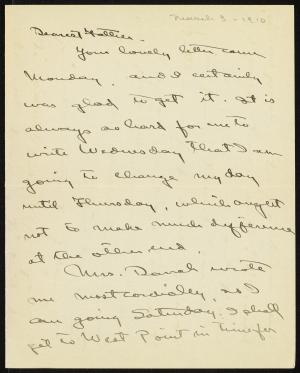 March 3 - 1910
Dearest Mother -
Your lovely letter came
Monday, and I certainly
was glad to get it. It is
always so hard for me to
write Wednesday that I am
going to change my day
until Thursday, which ought
not to make much difference
at the other end.
Mrs. wrote
me most cordially, so I
am going Saturday. I shall
get to West Point in time for